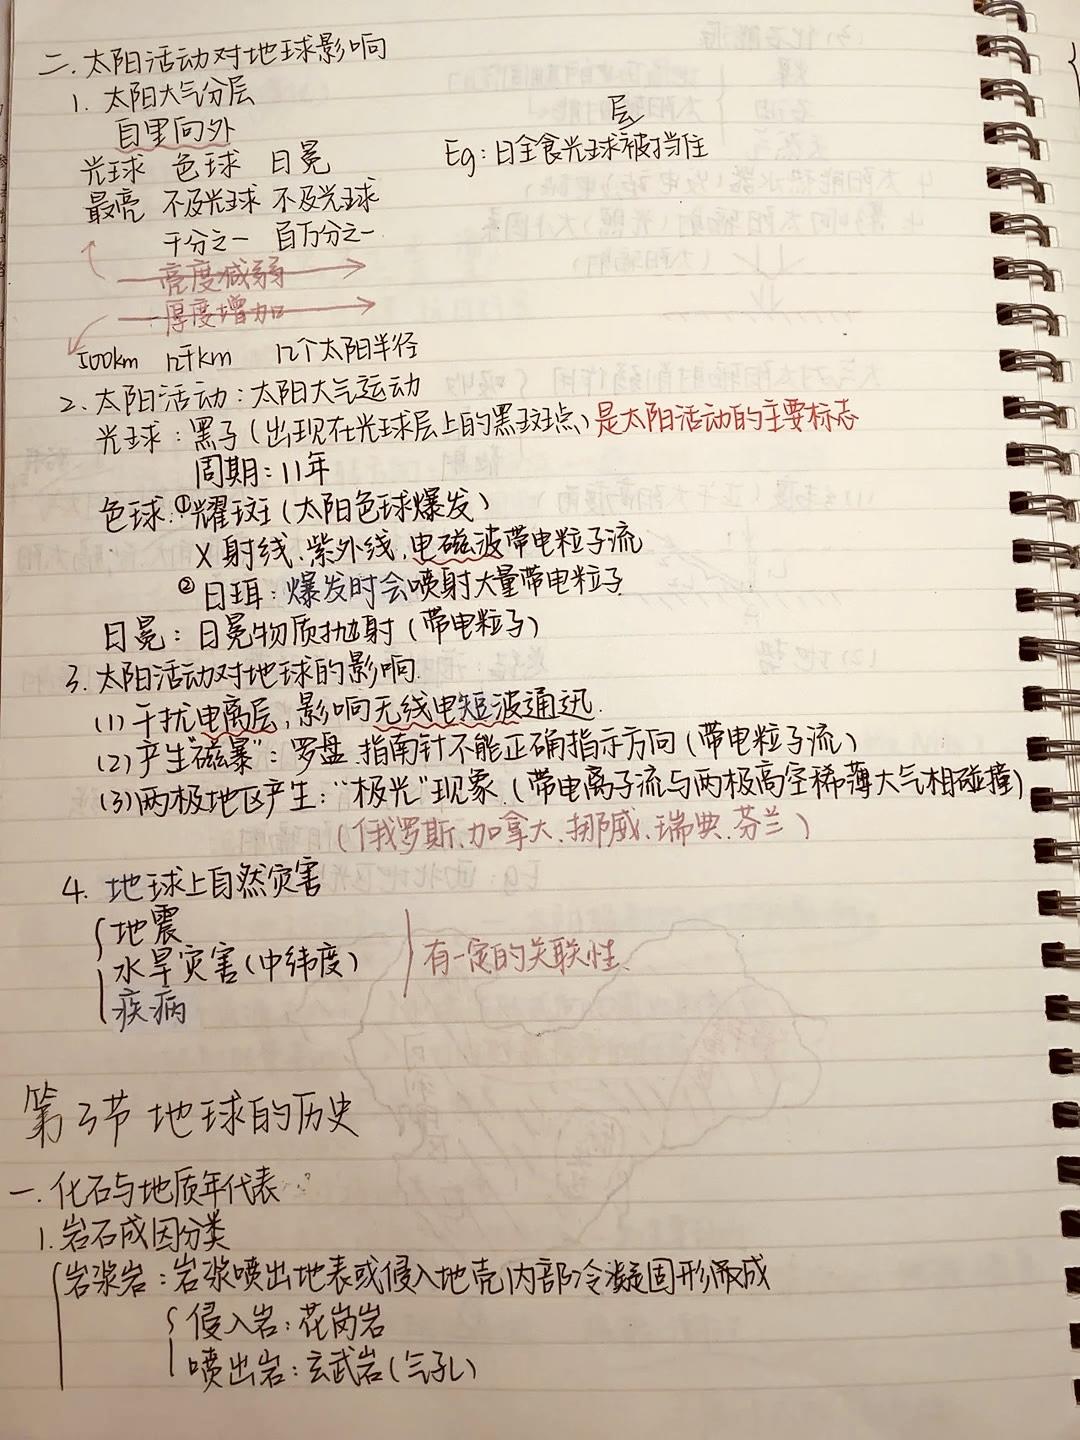 二.太阳活动对地球影响
1. 太阳大气分层
自里向外
光球 色球 日冕
Eg:日全食光球层被挡住
最亮 不及光球 不及光球
千分之一 百万分之一
亮度减弱
厚度增加
500km 几千km 几个太阳半径
2. 太阳活动:太阳大气运动
光球:黑子(出现在光球层上的黑斑点)是太阳活动的主要标志
周期:11年
色球:①耀斑(太阳色球爆发)
X射线、紫外线、电磁波带电粒子流
②日珥:爆发时会喷射大量带电粒子
日冕:日冕物质抛射(带电粒子)
3. 太阳活动对地球的影响.
(1)干扰电离层,影响无线电短波通迅.
(2)产生"磁暴":罗盘、指南针不能正确指示方向(带电粒子流)
(3)两极地区产生:"极光"现象.(带电离子流与两极高空稀薄大气相碰撞)
(俄罗斯、加拿大、挪威、瑞典、芬兰)
4. 地球上自然灾害
地震
水旱灾害(中纬度)
有一定的关联性.
疾病
第3节 地球的历史
一.化石与地质年代表
1.岩石成因分类
岩浆岩:岩浆喷出地表或侵入地壳内部冷凝固形而成
侵入岩:花岗岩
喷出岩:玄武岩(气孔)